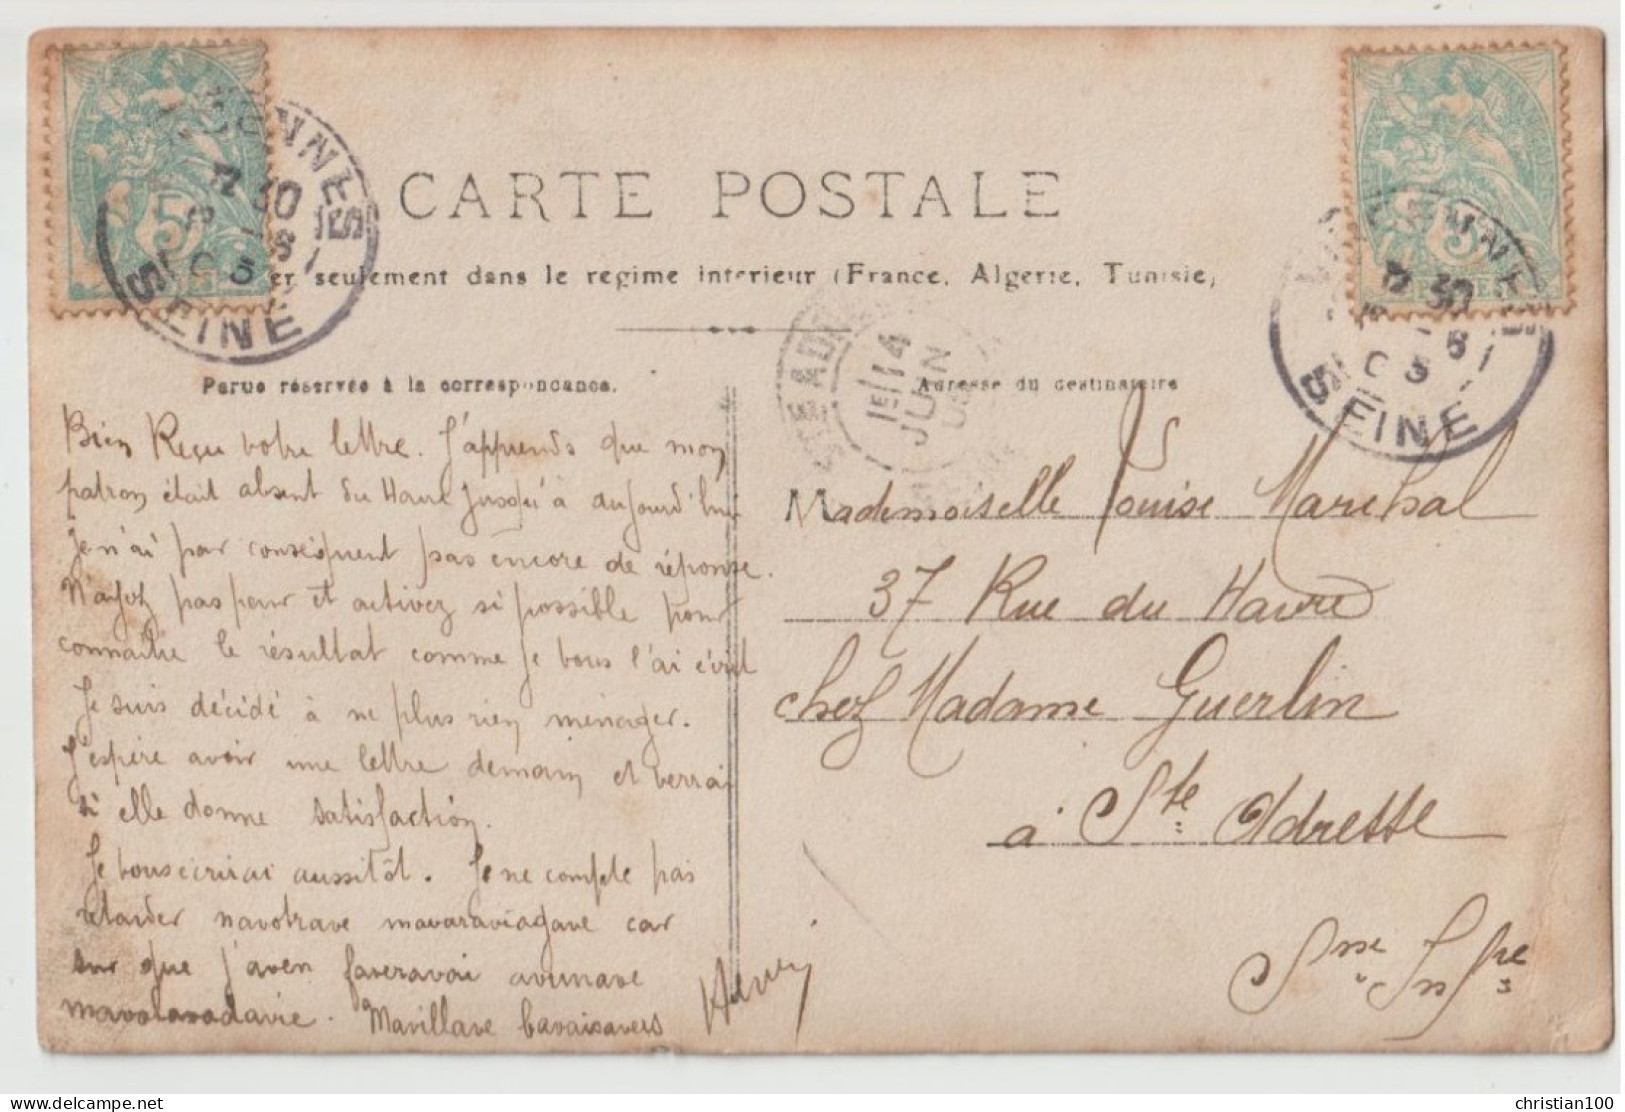 CARTE POSTALE
er seulement dans le regime interieur (France, Algerie, Tunisie)
Partie réservée à la correspondance.
Adresse du destinataire
Bien Reçu votre lettre. J'apprends que mon
patron était absent du Havre jusqu'à aujourd'hui
Je n'ai par conséquent pas encore de réponse.
N'ayez pas peur et activez si possible pour
connaître le résultat comme je vous l'ai écrit
Je suis décidé à ne plus rien ménager.
J'espère avoir une lettre demain et verrai
si elle donne satisfaction.
Je vous écrirai aussitôt. Je ne compte pas
retarder navotrave mavaraviagave car
que j'aven faveravai avunave
mavalavadavie. Mavillave bavaisavers
Henri
Mademoiselle Louise Marchal
37 Rue du Havre
chez Madame Guerlin
à Ste Adresse
Sne Infre
SEINE
5
30
SEINE
5
30
1E/14
JUIN
05
christian100